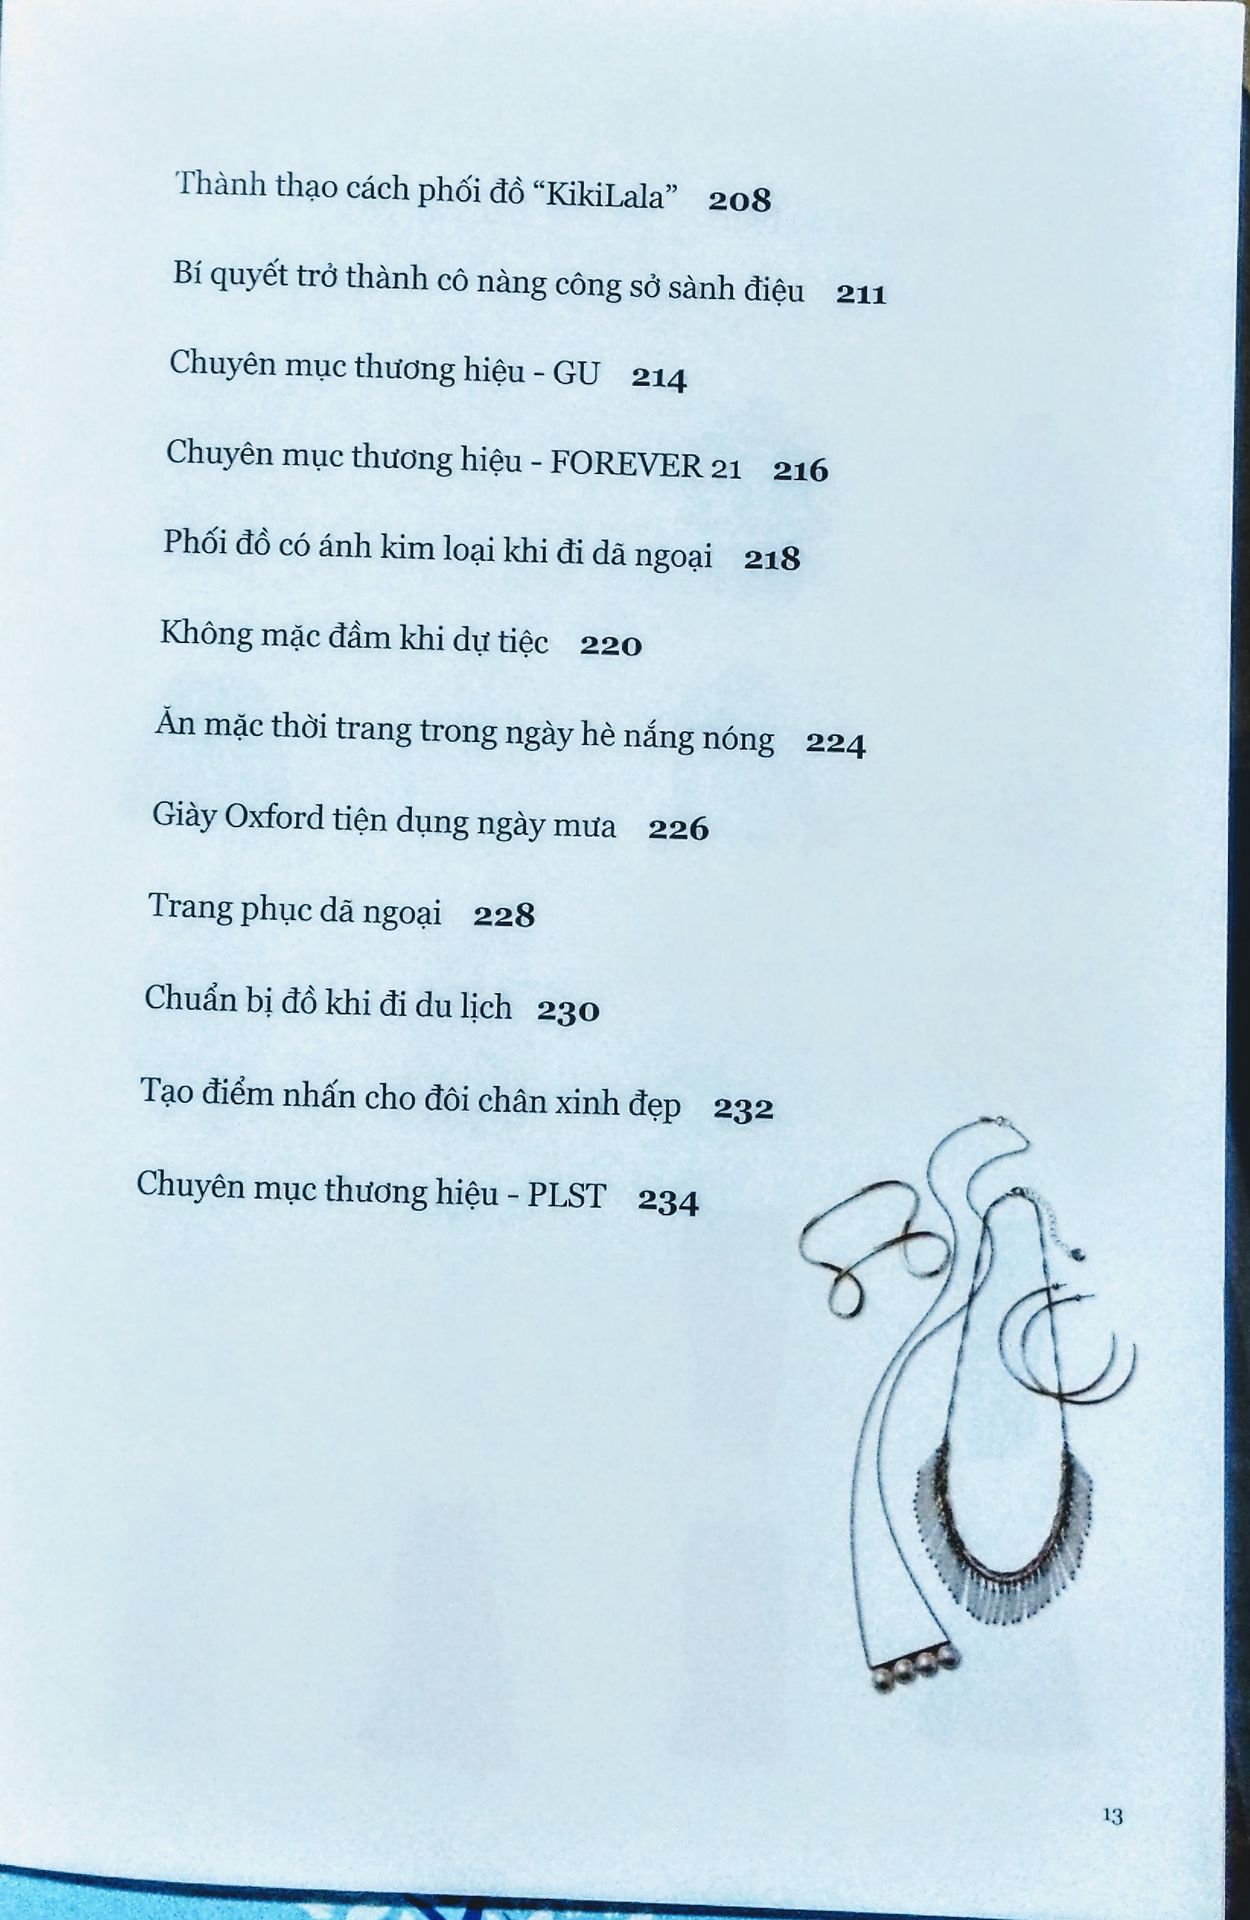 Thành thạo cách phối đồ “KikiLala” 208
Bí quyết trở thành cô nàng công sở sành điệu 211
Chuyên mục thương hiệu - GU 214
Chuyên mục thương hiệu - FOREVER 21 216
Phối đồ có ánh kim loại khi đi dã ngoại 218
Không mặc đầm khi dự tiệc 220
Ăn mặc thời trang trong ngày hè nắng nóng 224
Giày Oxford tiện dụng ngày mưa 226
Trang phục dã ngoại 228
Chuẩn bị đồ khi đi du lịch 230
Tạo điểm nhấn cho đôi chân xinh đẹp 232
Chuyên mục thương hiệu - PLST 234
13